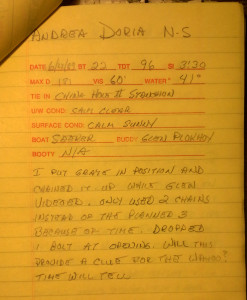 ANDREA DORIA N-5
DATE BT 22 TDT 96 SI 3:30
MAX D 181 VIS 60' WATER° 41°
TIE IN CHINA HOLE II STANCHION
U/W COND: CALM CLEAR
SURFACE COND: CALM SUNNY
BOAT SEEKER BUDDY GLEN PLOKHOY
BOOTY N/A
I PUT GRATE IN POSITION AND
CHAINED IT UP WHILE GLEN
VIDEOED. ONLY USED 2 CHAINS
INSTEAD OF THE PLANNED 3
BECAUSE OF TIME. DROPPED
1 BOLT AT OPENING. WILL THIS
PROVIDE A CLUE FOR THE WAHOO?
TIME WILL TELL